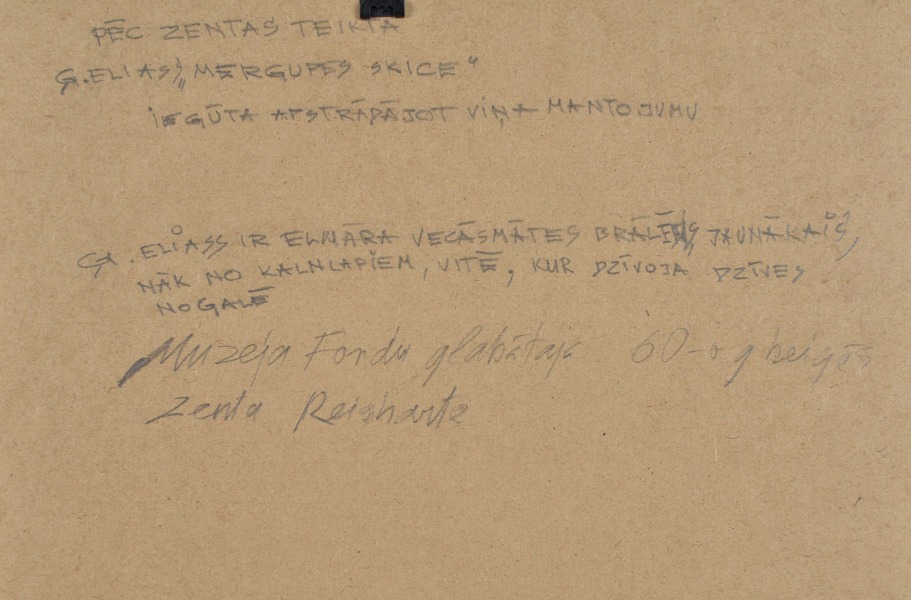 PĒC ZENTAS TEIKTĀ
Ģ. ELIASS „MERGUPES SKICE“
IEGŪTA APSTRĀDĀJOT VIŅA MANTOJUMU
Ģ. ELIASS IR ELMĀRA VECĀSMĀTES BRĀLIS JAUNĀKAIS,
NĀK NO KALNLAPIEM, VITĒ, KUR DZĪVOJA DZĪVES
NOGALĒ
Muzeja Fondu glabātāja 60-o g beigās
Zenta